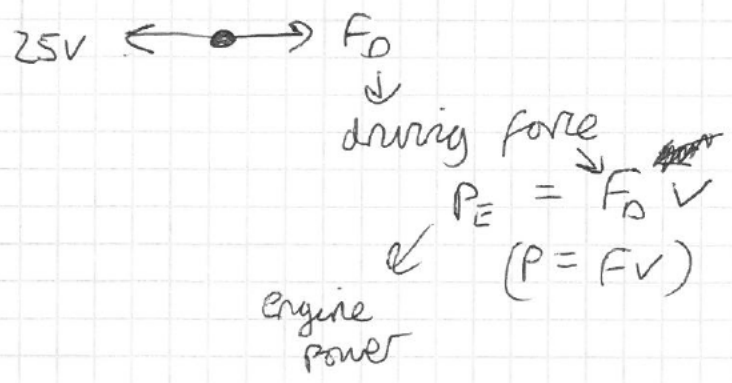 25v F_D
driving force
P_E = F_D v
(P = Fv)
engine
power